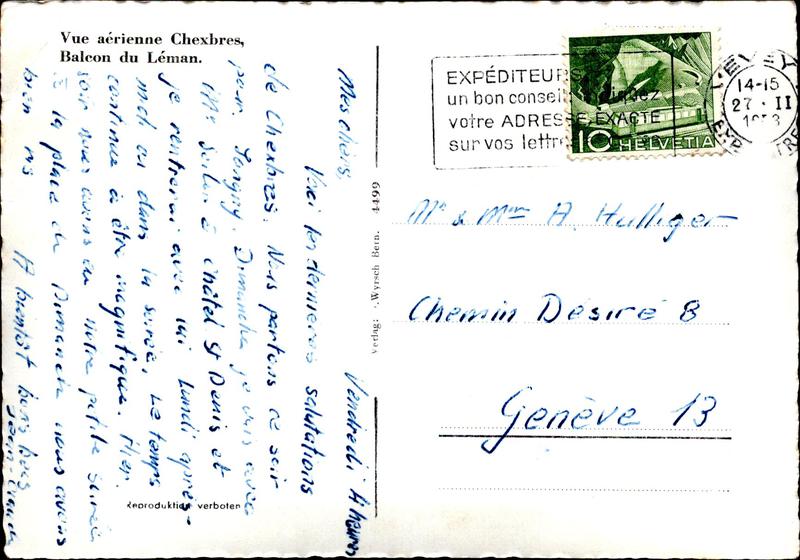 Vue aérienne Chexbres,
Balcon du Léman.
Mes chéris, Vendredi 4 heures
Voici les dernières salutations
de Chexbres. Nous partons ce soir
pour Dimanche je vais avec
à Châtel St Denis et
je rentrerai avec lui Lundi après-
midi ou dans la soirée. Le temps
continue à être magnifique. Hier
soir nous avons eu notre petite soirée
à la place de Dimanche nous avons
bien ris
A bientôt bons becs
Verlag: Wyrsch Bern. 4499
Reproduktion verboten
EXPÉDITEURS
un bon conseil
votre ADRESSE EXACTE
sur vos lettre
10 HELVETIA
VEVEY
14-15
27 · II
1953
Mr & Mme A. Hulliger
Chemin Désiré 8
Genève 13